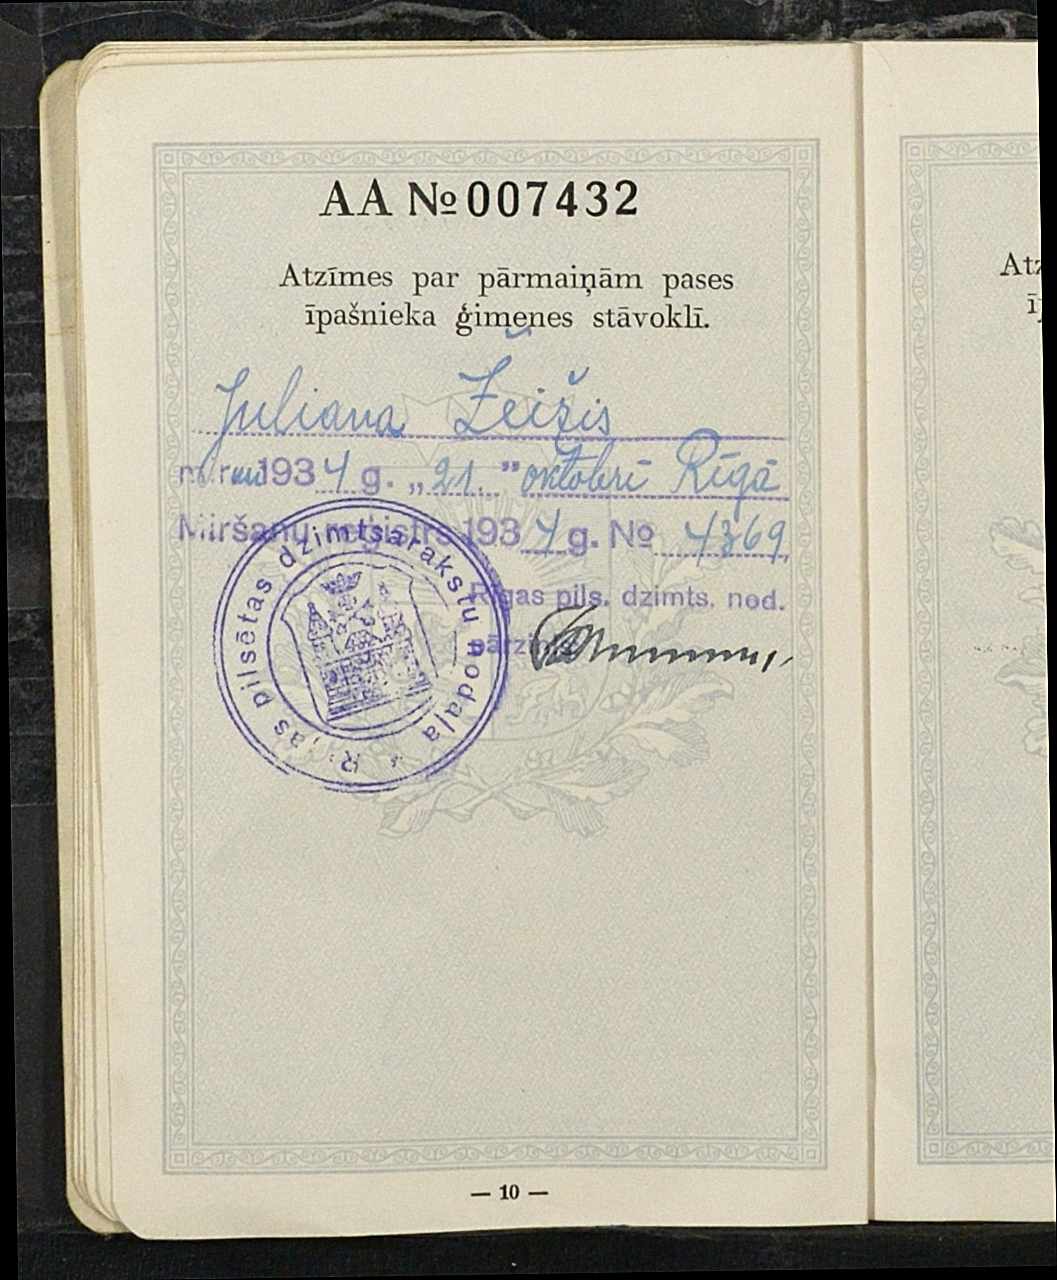 AA № 007432
Atzīmes par pārmaiņām pases
īpašnieka ģimenes stāvoklī.
Juliana
1934 g. „21." oktobrī Rīgā
Miršanu reģistrs 1934 g. № 4369
Rīgas pils. dzimts. nod.
pārzinis
Rīgas pilsētas dzimtsarakstu nodaļa
— 10 —